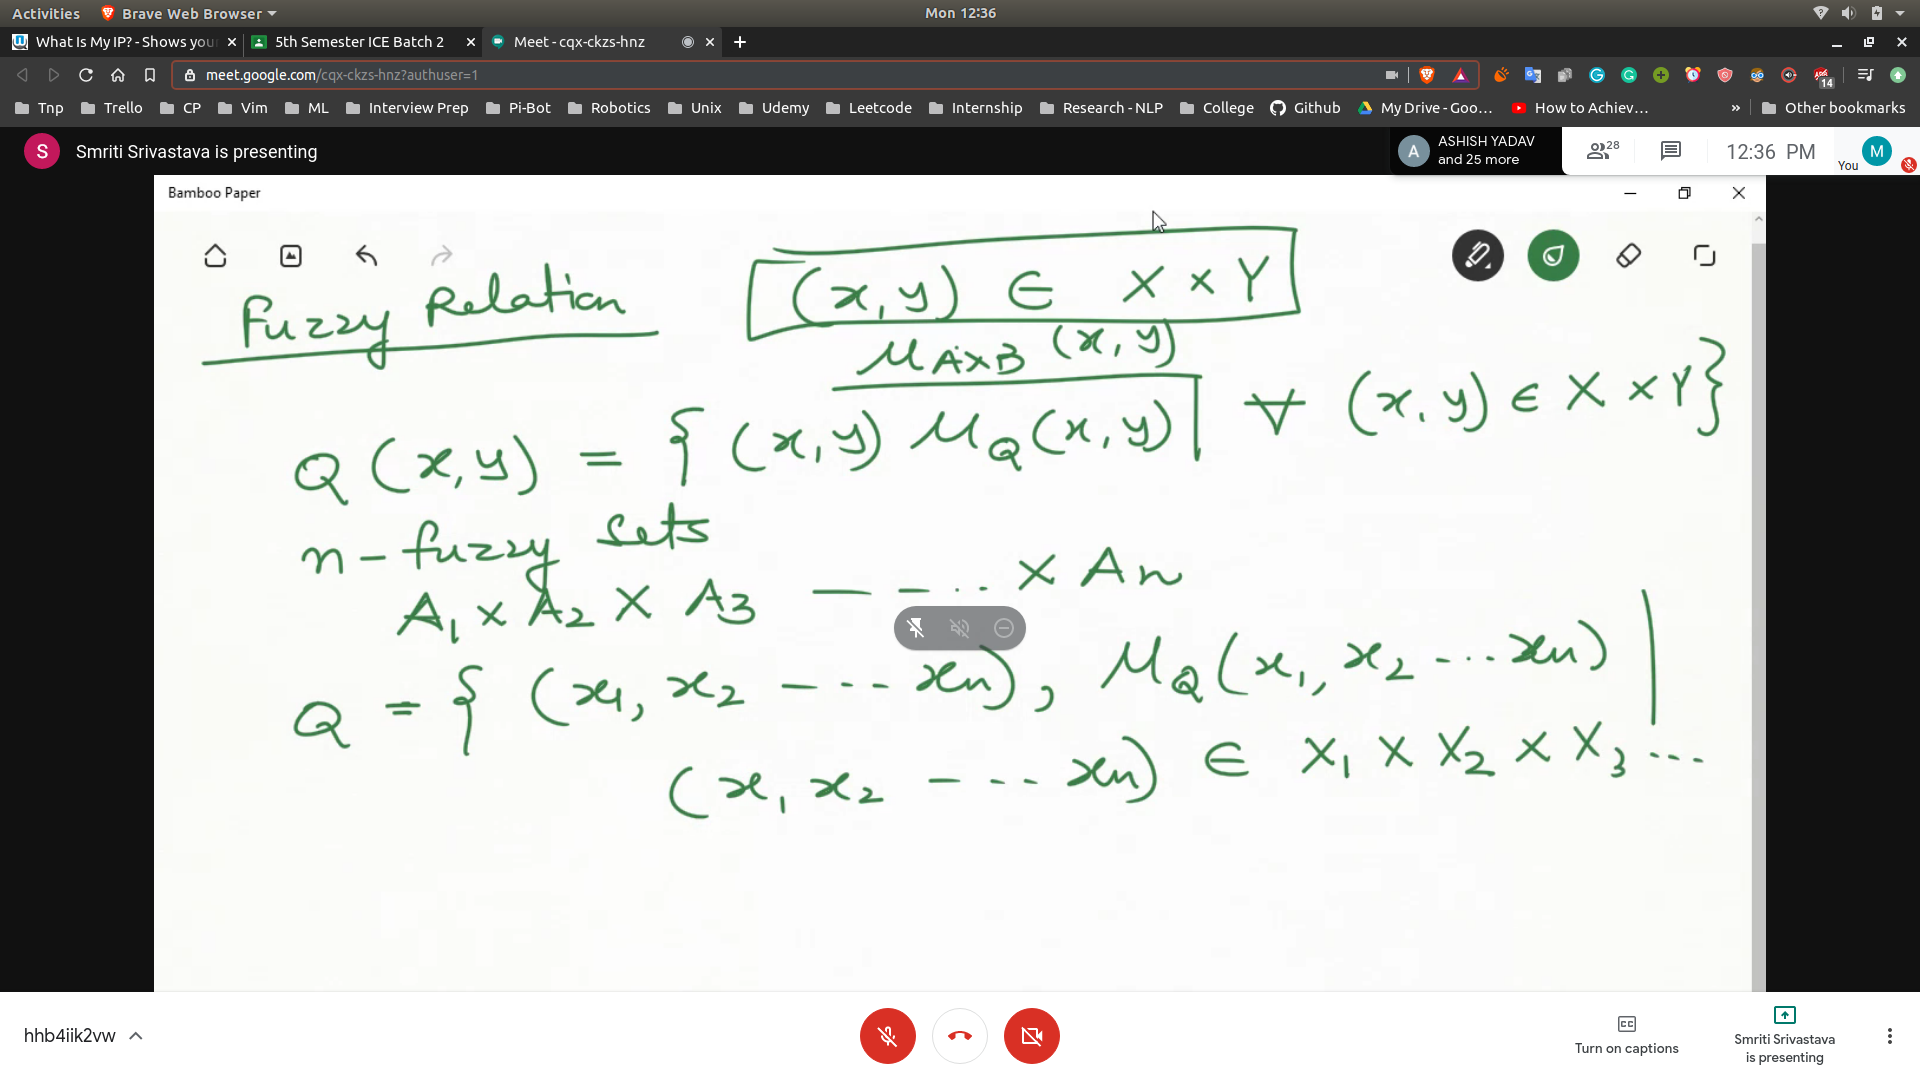 Activities Brave Web Browser Mon 12:36
What Is My IP? - Shows you 5th Semester ICE Batch 2 Meet - cqx-ckzs-hnz
meet.google.com/cqx-ckzs-hnz?authuser=1 14
Tnp Trello CP Vim ML Interview Prep Pi-Bot Robotics Unix Udemy Leetcode Internship Research - NLP College Github My Drive - Goo... How to Achiev... » Other bookmarks
S Smriti Srivastava is presenting A ASHISH YADAV and 25 more 28 12:36 PM You M
Bamboo Paper
Fuzzy Relation (x,y) ∈ X × Y
μ_{A×B} (x,y)
Q (x,y) = { (x,y) μ_Q (x,y) | ∀ (x,y) ∈ X × Y }
n - fuzzy sets
A₁ × A₂ × A₃ — – .. × An
Q = { (x₁, x₂ – – .. xn), μ_Q (x₁, x₂ – ... xn) |
(x₁ x₂ – – .. xn) ∈ X₁ × X₂ × X₃ ...
hhb4iik2vw Turn on captions Smriti Srivastava is presenting